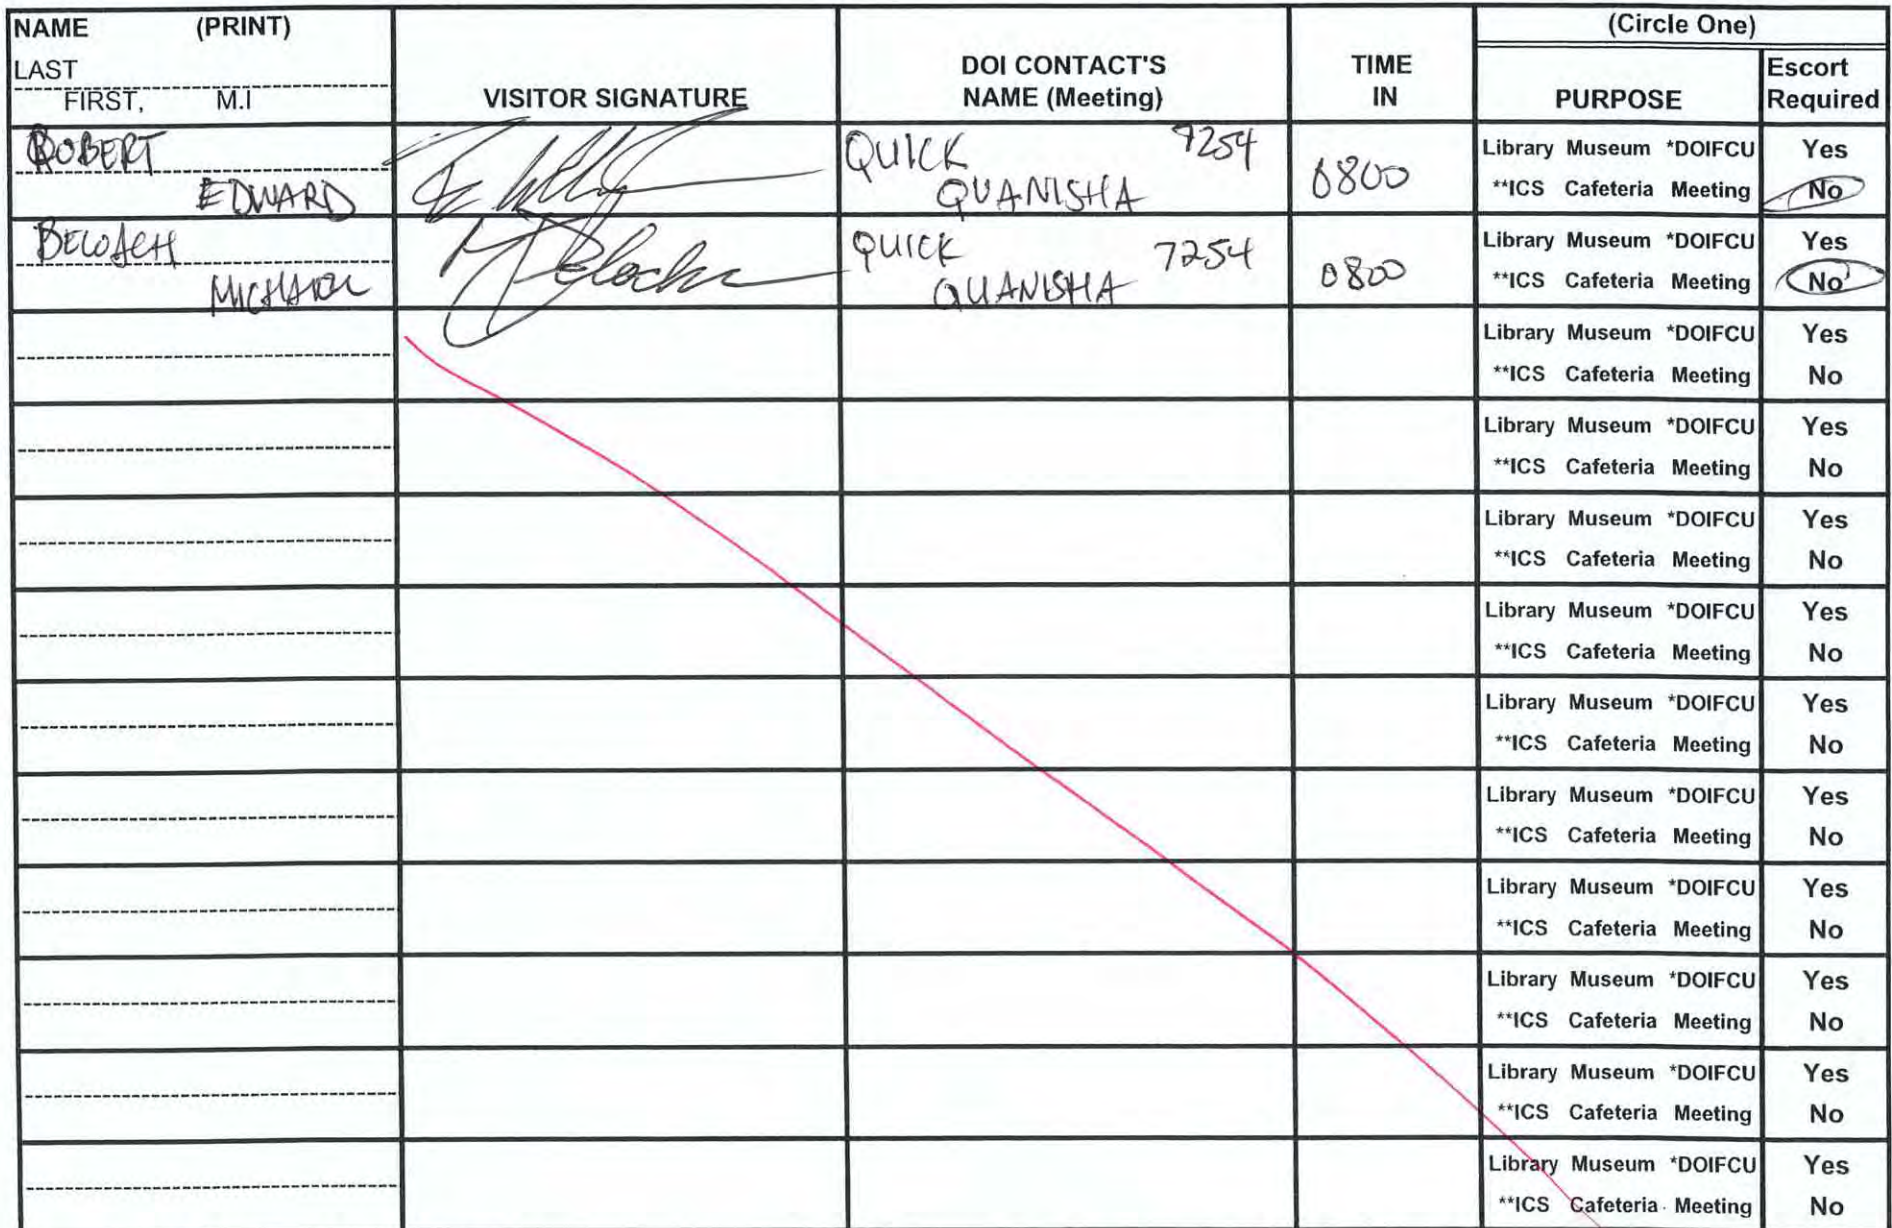 NAME (PRINT)
LAST
FIRST, M.I
VISITOR SIGNATURE
DOI CONTACT'S
NAME (Meeting)
TIME
IN
(Circle One)
PURPOSE
Escort
Required
ROBERT
EDWARD
QUICK 7254
QUANISHA
0800
Library Museum *DOIFCU Yes
**ICS Cafeteria Meeting No
BELOACH
MICHAEL
QUICK 7254
QUANISHA
0800
Library Museum *DOIFCU Yes
**ICS Cafeteria Meeting No
Library Museum *DOIFCU Yes
**ICS Cafeteria Meeting No
Library Museum *DOIFCU Yes
**ICS Cafeteria Meeting No
Library Museum *DOIFCU Yes
**ICS Cafeteria Meeting No
Library Museum *DOIFCU Yes
**ICS Cafeteria Meeting No
Library Museum *DOIFCU Yes
**ICS Cafeteria Meeting No
Library Museum *DOIFCU Yes
**ICS Cafeteria Meeting No
Library Museum *DOIFCU Yes
**ICS Cafeteria Meeting No
Library Museum *DOIFCU Yes
**ICS Cafeteria Meeting No
Library Museum *DOIFCU Yes
**ICS Cafeteria Meeting No
Library Museum *DOIFCU Yes
**ICS Cafeteria Meeting No